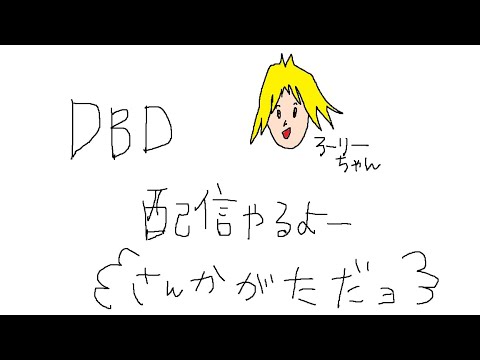 DBD
ろーりー
ちゃん
配信やるよー
さんかがただョ